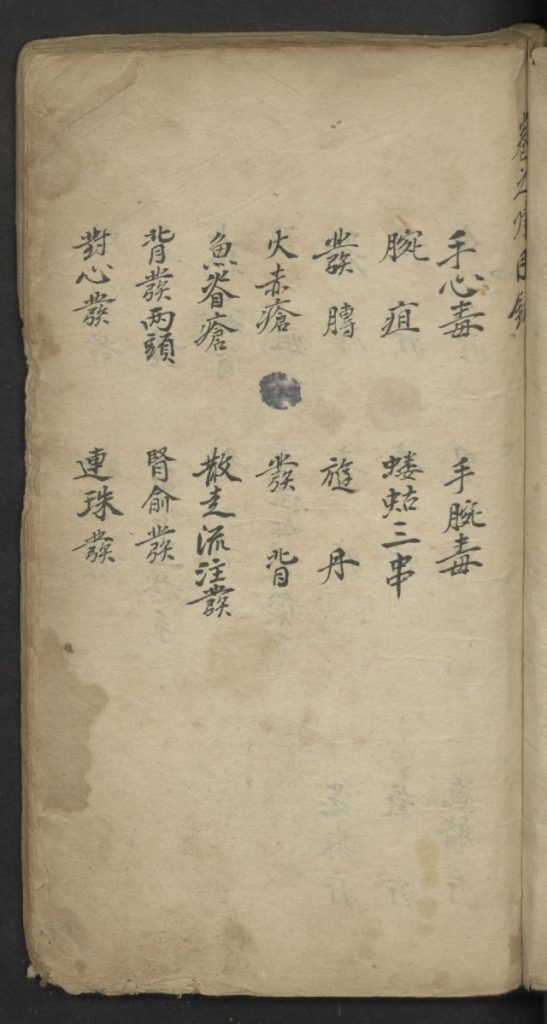 手心毒 手腕毒
腕疽 蝼蛄三串
發膊 旋丹
火赤瘡 發背
魚脊瘡 散走流注發
背發兩頭 腎俞發
對心發 連珠發